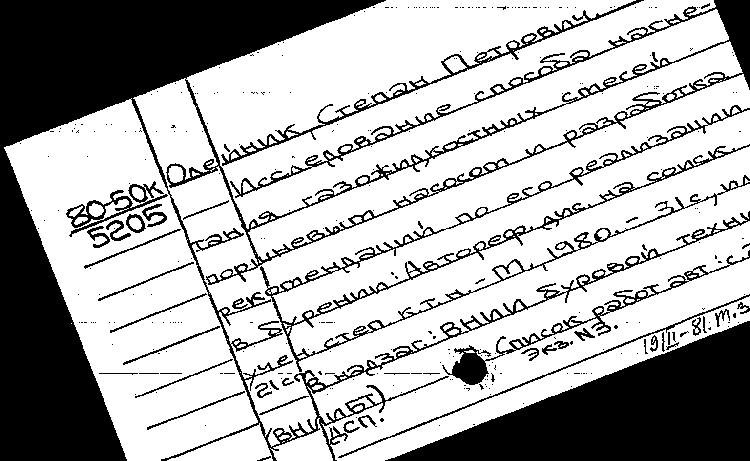 80-50К
5205
Олейник, Степан Петрович.
Исследование способа насне-
тания газожидкостных смесей
поршневым насосом и разработка
рекомендаций по его реализации
в бурении: Автореф. дис. на соиск.
учен. степ. к.т.н. - М., 1980. - 31с., ил
21 см.
В надзаг.: ВНИИ буровой техни
(ВНИИБТ) Список работ авт.: с.
ДСП. Экз. N3.
19/II-81.М.З